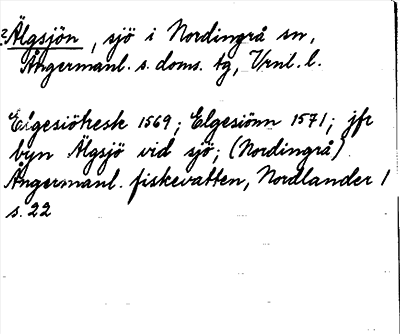 ?Älgsjön, sjö i Nordingrå sn,
Ångermanl. s. doms. tg, Vrnl. l.
Elgesiöhesk 1569; Elgesiönn 1571; jfr
byn Älgsjö vid sjö; (Nordingrå)
Ångermanl. fiskevatten, Nordlander 1
s. 22